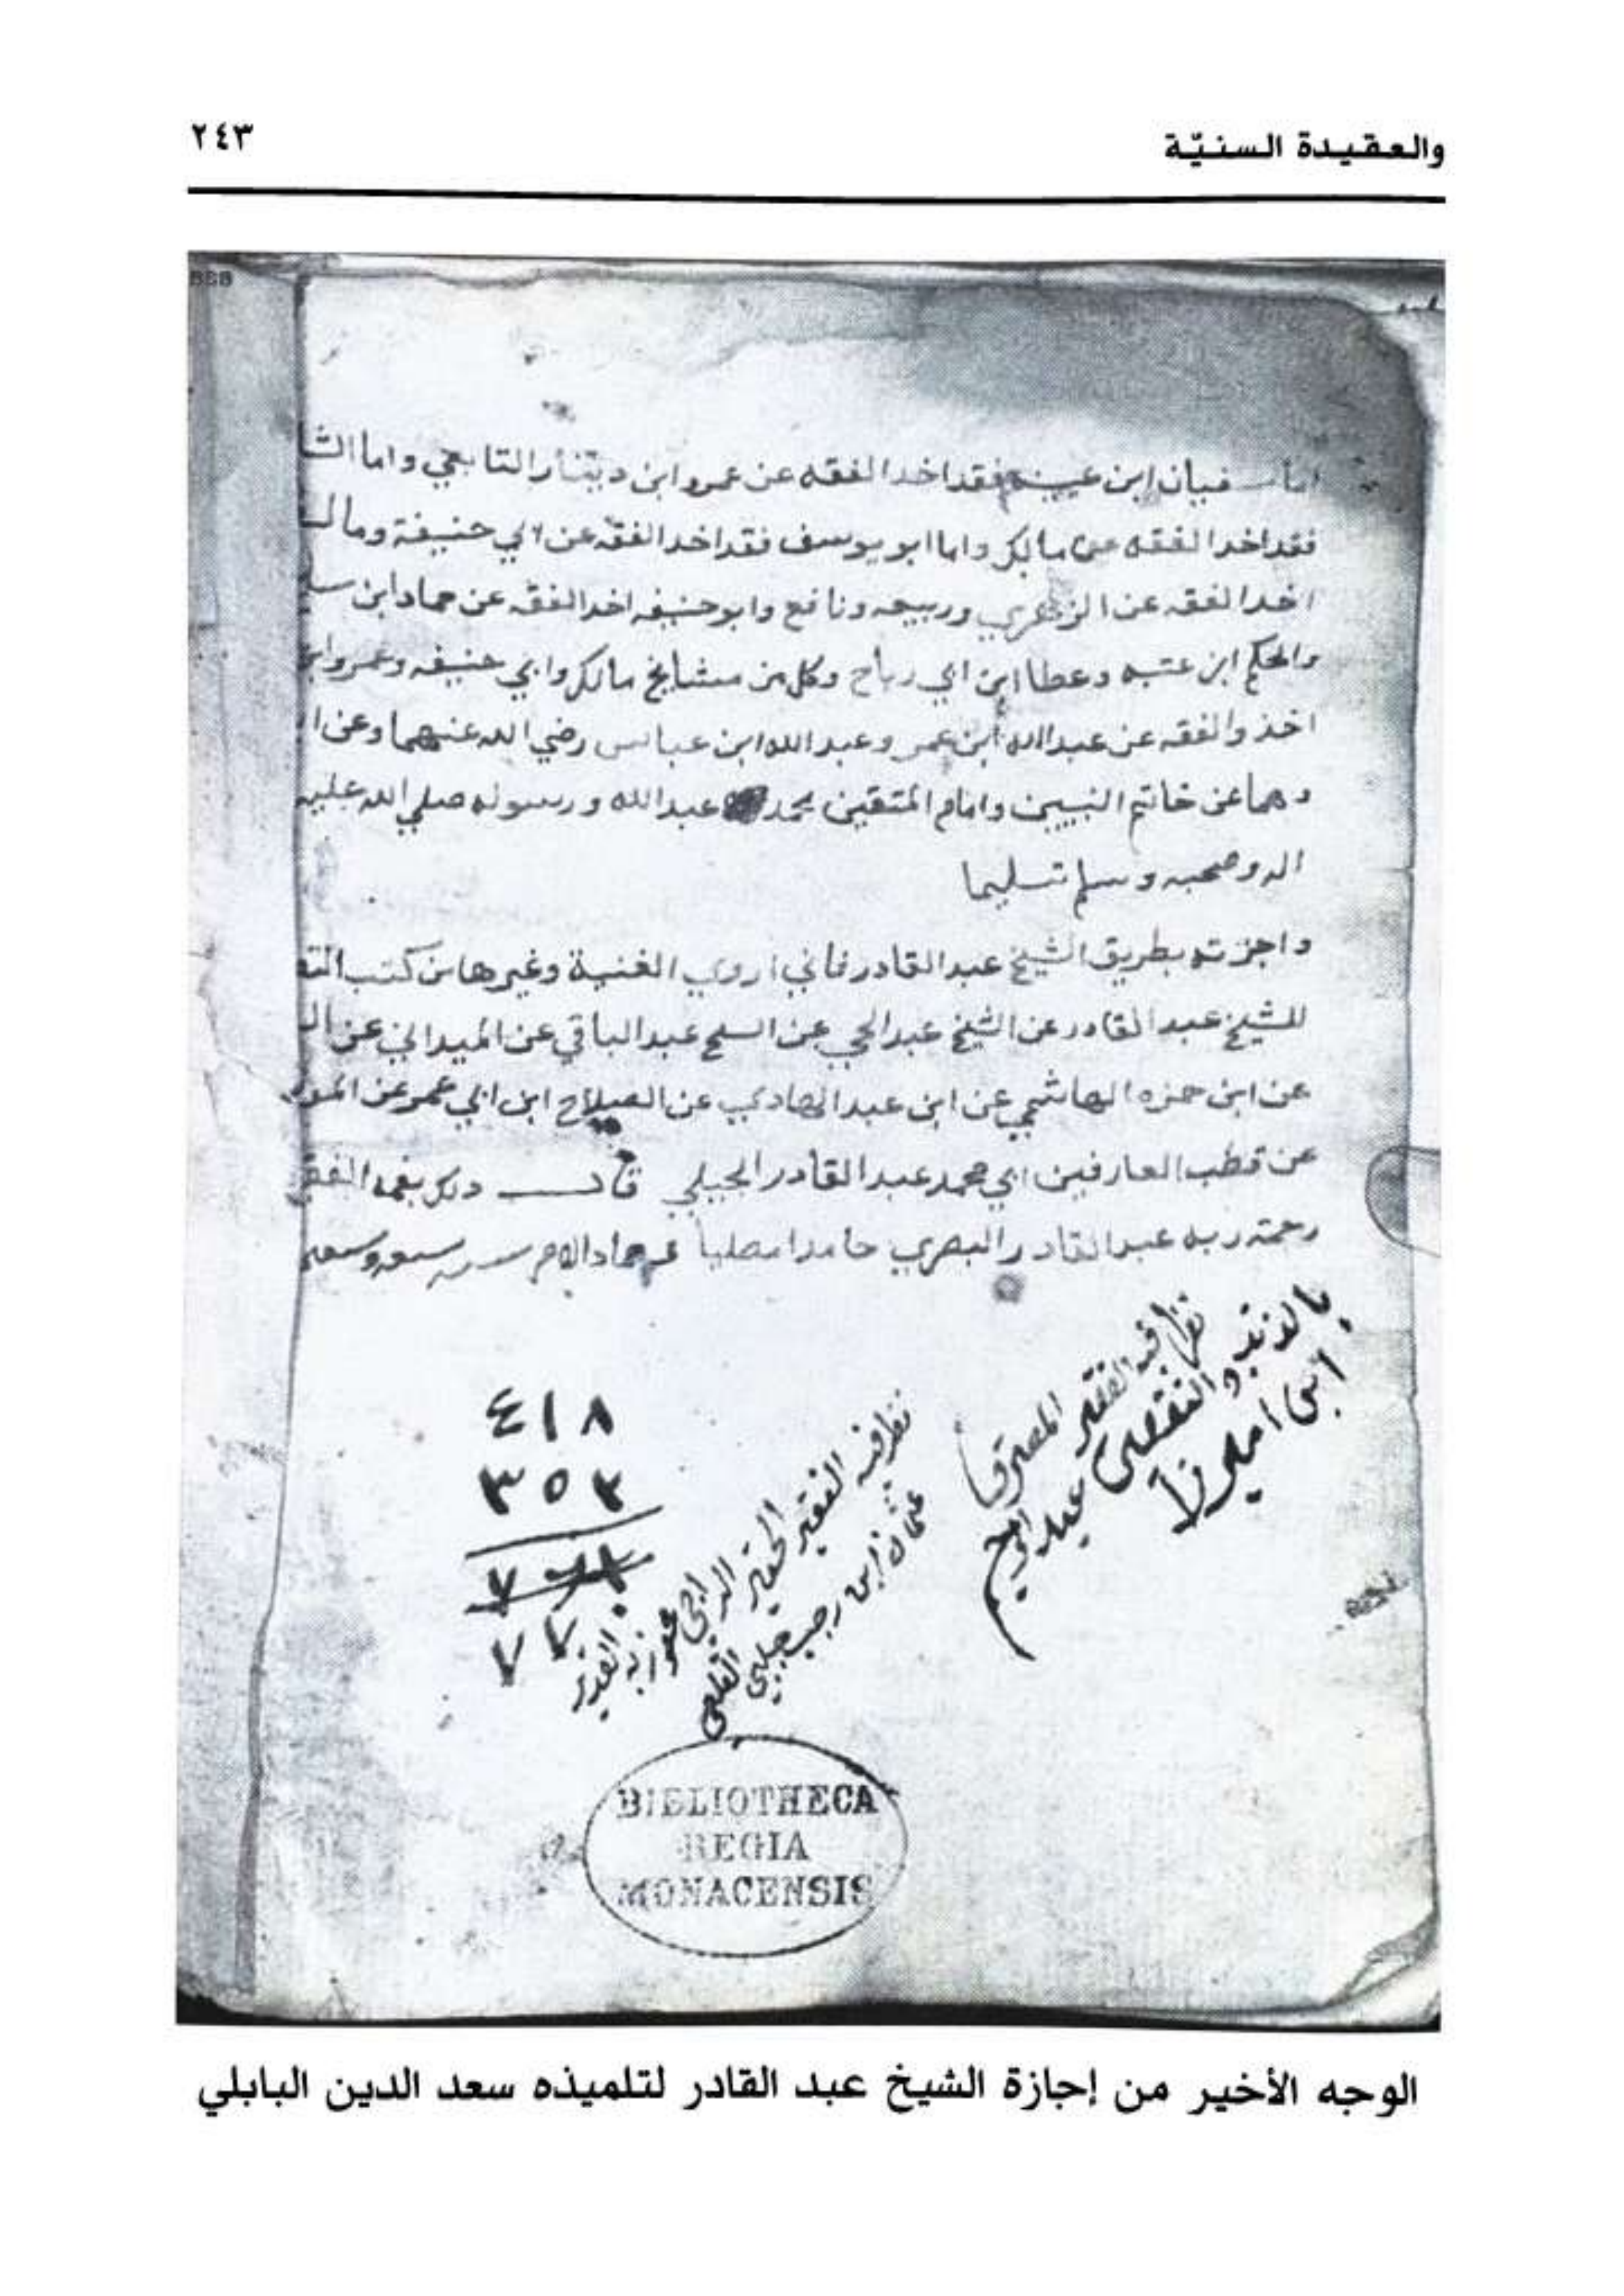 والعقيدة السنيّة
٢٤٣
اما سفيان ابن عيينه فقد اخد الفقه عن عمرو ابن دينار التابعي واما الشا
فقد اخد الفقه عن مالك واما ابو يوسف فقد اخد الفقه عن ابي حنيفة ومالك
اخد الفقه عن الزهري وربيعه ونافع وابو حنيفه اخد الفقه عن حماد ابن سلي
والحكم ابن عتبه وعطا ابن ابي رباح وكل من مشايخ مالك وابي حنيفه وعمرو ابن
اخذ والفقه عن عبد الله ابن عمر وعبد الله ابن عباس رضي الله عنهما وعن ا
وهما عن خاتم النبيين وامام المتقين محمد عبد الله ورسوله صلي الله عليه
اله وصحبه وسلم تسليما
واجزته بطريق الشيخ عبد القادر فاني اروي الغنية وغيرها من كتب
للشيخ عبد القادر عن الشيخ عبد الحي عن السح عبد الباقي عن الميداني عن ال
عن ابن حمزه الهاشمي عن ابن عبد الهادي عن الصلاح ابن ابي عمر عن
عن قطب العارفين ابي محمد عبد القادر الجيلي قال دلك بفمه الفق
رحمة ربه عبد القادر البصري حامدا مصليا
نظر فيه الفقير المعترف
بالذنب والتقصير عبد الرحيم
ابن اميرزا
نظر فيه الفقير الحقير الراجي عفو ربه القدير
عثمان ابن رجب جلبي
٤١٨
٣٥٢
٧٧٠
BIBLIOTHECA
REGIA
MONACENSIS
الوجه الأخير من إجازة الشيخ عبد القادر لتلميذه سعد الدين البابلي